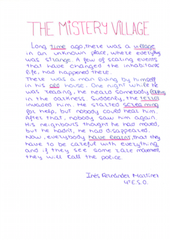 THE MISTERY VILLAGE
Long time ago, there was a village
in an unknown place, where everything
was strange. A few of scaring events
that have changed the inhabitans
life, had happened there.
There was a man living by himself
in his old house. One night while he
was reading, he hears somebody
in the darkness. Suddenly, the terror
invaded him. He started screaming
for help, but nobody could hear him.
After that, nobody saw him again.
His neighbours thought he had moved,
but he hadn't, he had disappeared.
Now, everybody have heard that they
have to be careful with everything
and if they see some rare moviment
they will call the police.
Inés Fernández Martínez
4º E.S.O.